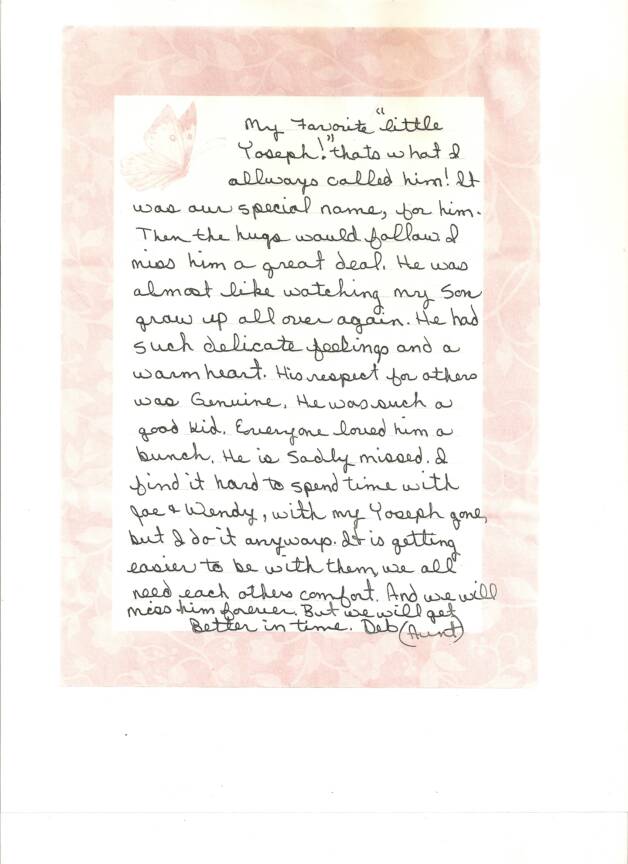 My Favorite "little
Yoseph!" thats what I
allways called him! It
was our special name, for him.
Then the hugs would follow I
miss him a great deal. He was
almost like watching my Son
grow up all over again. He had
such delicate feelings and a
warm heart. His respect for others
was Genuine. He was such a
good kid. Everyone loved him a
bunch. He is Sadly missed. I
find it hard to spend time with
Joe & Wendy, with my Yoseph gone,
but I do it anyways. It is getting
easier to be with them, we all
need each others comfort. And we will
miss him forever. But we will get
Better in time. Deb (Aunt)